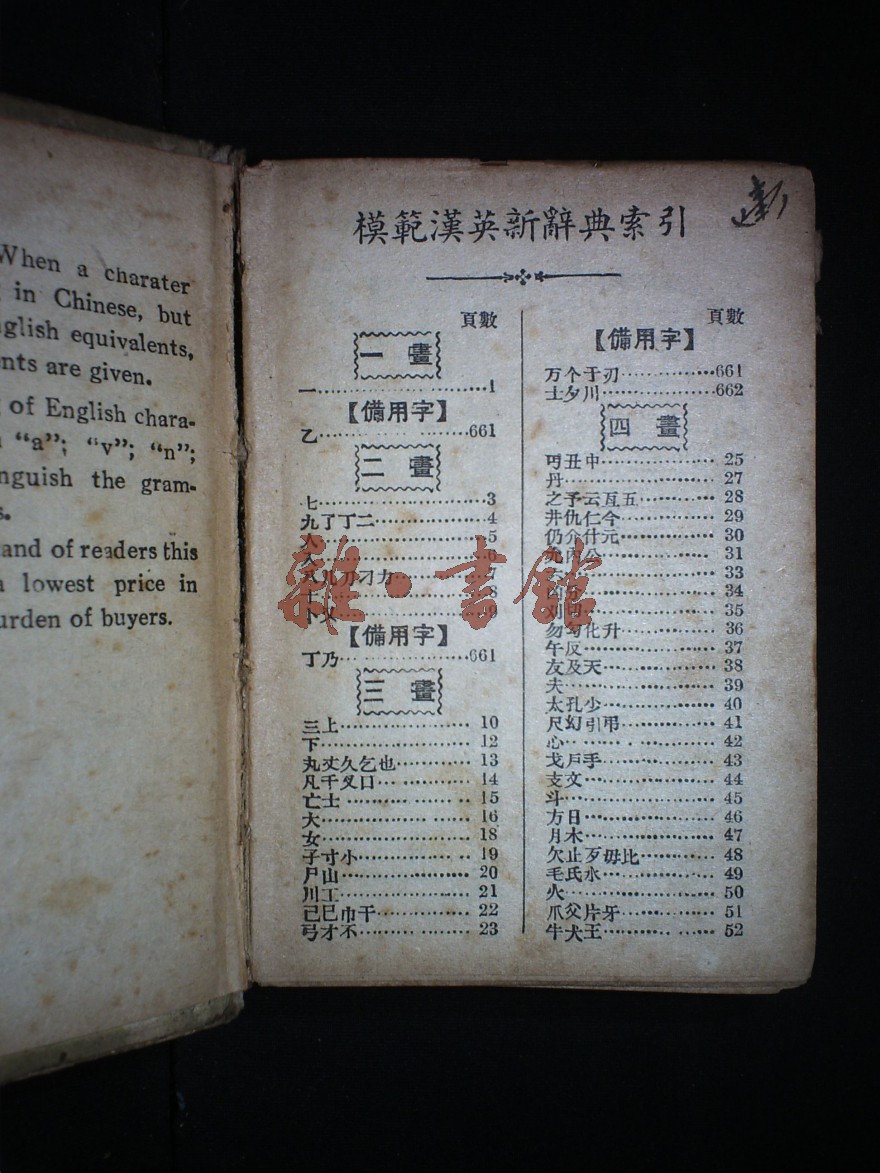 When a charater
in Chinese, but
glish equivalents,
nts are given.
of English chara-
"a"; "v"; "n";
nguish the gram-
s.
and of readers this
lowest price in
urden of buyers.
模範漢英新辭典索引
頁數
一畫
一 1
【備用字】
乙 661
二畫
七 3
九了丁二 4
人 5
7
8
9
【備用字】
丁乃 661
三畫
三上 10
下 12
丸丈久乞也 13
凡千叉口 14
亡士 15
大 16
女 18
子寸小 19
尸山 20
川工 21
己巳巾干 22
弓才不 23
頁數
【備用字】
万个于刃 661
土夕川 662
四畫
丑中 25
丹 27
之予云亙五 28
井仇仁今 29
仍介什元 30
內公 31
33
34
35
勿勾化升 36
午反 37
友及天 38
夫 39
太孔少 40
尺幻引弔 41
心 42
戈戶手 43
支文 44
斗 45
方日 46
月木 47
欠止歹毋比 48
毛氏水 49
火 50
爪父片牙 51
牛犬王 52
雜·書館